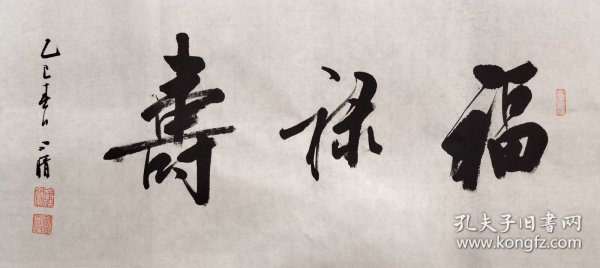 福禄寿
乙巳春日
孔夫子旧书网
www.kongfz.com